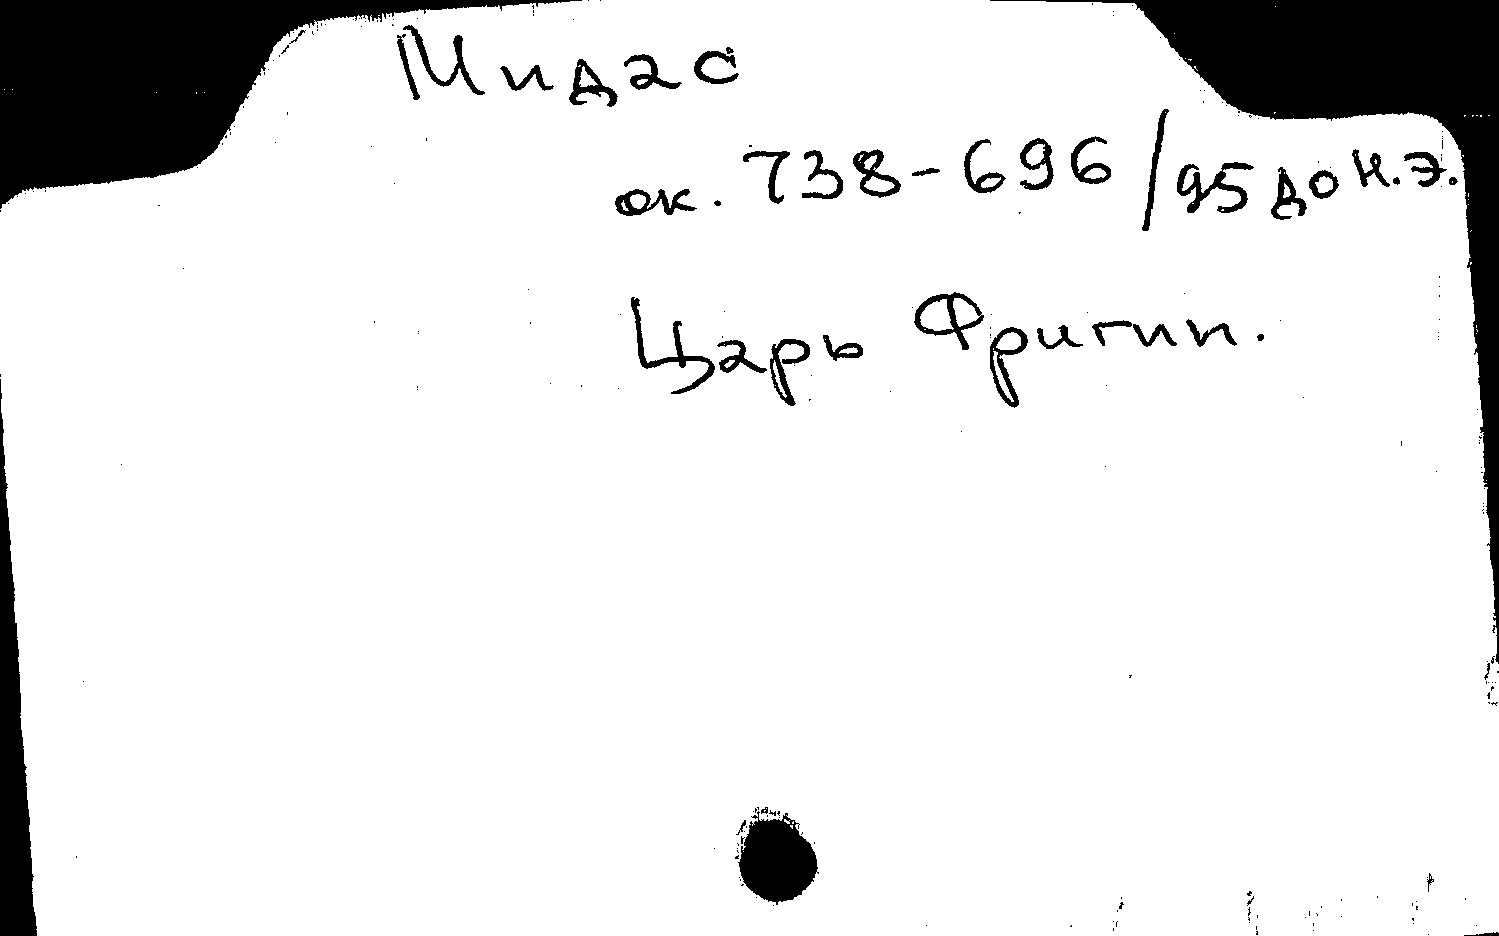 Мидас
ок. 738-696/95 до н.э.
Царь Фригии.